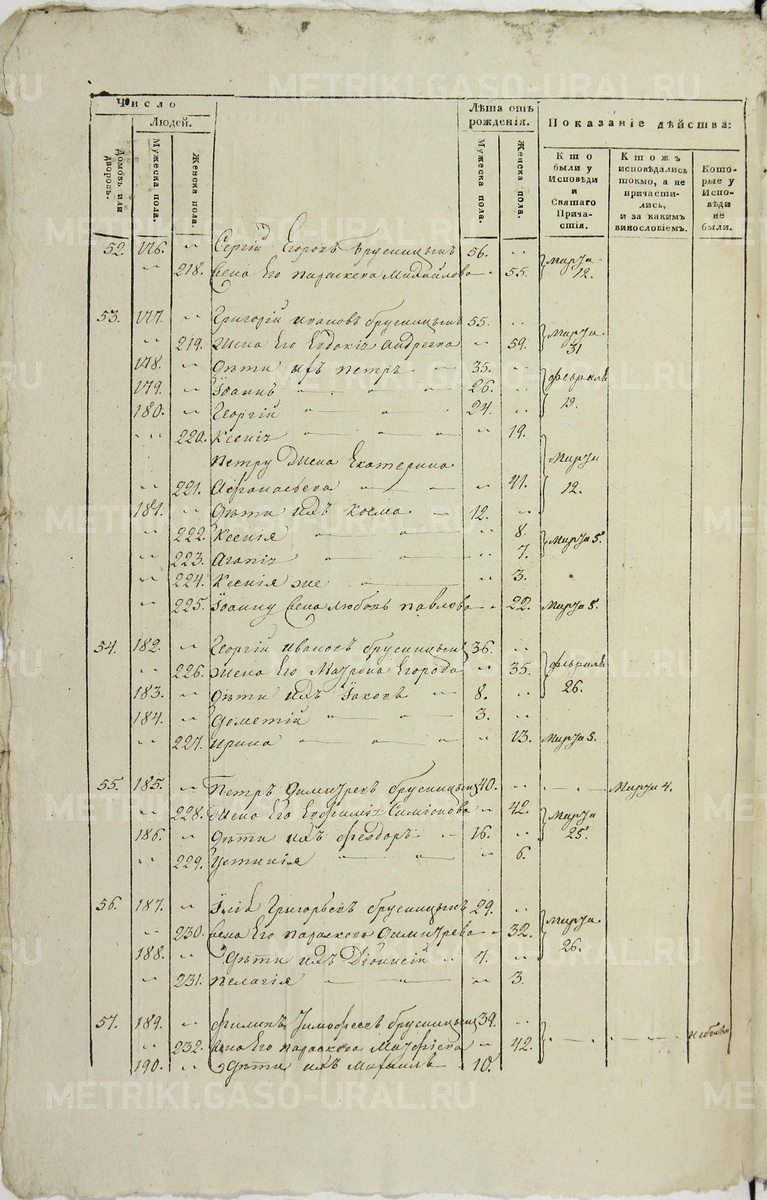 Число
Людей.
Домовъ или дворовъ.
Мужеска пола.
Женска пола.
Лѣта отъ рожденія.
Мужеска пола.
Женска пола.
Показаніе дѣйства:
Кто были у Исповѣди и Святаго Причастія.
Ктожъ исповѣдались токмо, а не причастились, и за какимъ винословіемъ.
Которые у Исповѣди не были.
52. 176. Сергій Егоровъ Брусницынъ 56. Марта
218. Жена Его Параскева Михайлова 55. 12.
53. 177. Григорій Ивановъ Брусницынъ 55. Марта
219. Жена Его Евдокія Андреева 59. 31
178. Дѣти ихъ Петръ 35. февраля
179. Іоаннъ 26.
180. Георгій 24. 19.
220. Ксенія 19.
Петру Жена Екатерина Марта
221. Афанасьева 41. 12.
181. Дѣти ихъ Косма 12.
222. Ксенія 8. Марта 5.
223. Агапія 7.
224. Ксенія же 3.
225. Іоанну Жена Любовь Павлова 22. Марта 5.
54. 182. Георгій Ивановъ Брусницынъ 36. февраля
226. Жена Его Матрона Егорова 35.
183. Дѣти ихъ Іаковъ 8. 26.
184. Дометій 3.
227. Ирина 13. Марта 5.
55. 185. Петръ Димитревъ Брусницынъ 40. Марта 4.
228. Жена Его Евфимія Симіонова 42. Марта
186. Дѣти ихъ Феодоръ 16. 25.
229. Устинія 6.
56. 187. Илія Григорьевъ Брусницынъ 29. Марта
230. Жена Его Параскева Димитрева 32. 26.
188. Дѣти ихъ Діонисій
231. Пелагія 3.
57. 189. Филипъ Тимофеевъ Брусницынъ 39.
232. Жена Его Параскева 42.
190. Дѣти ихъ Михаилъ 10.
METRIKI.GASO-URAL.RU